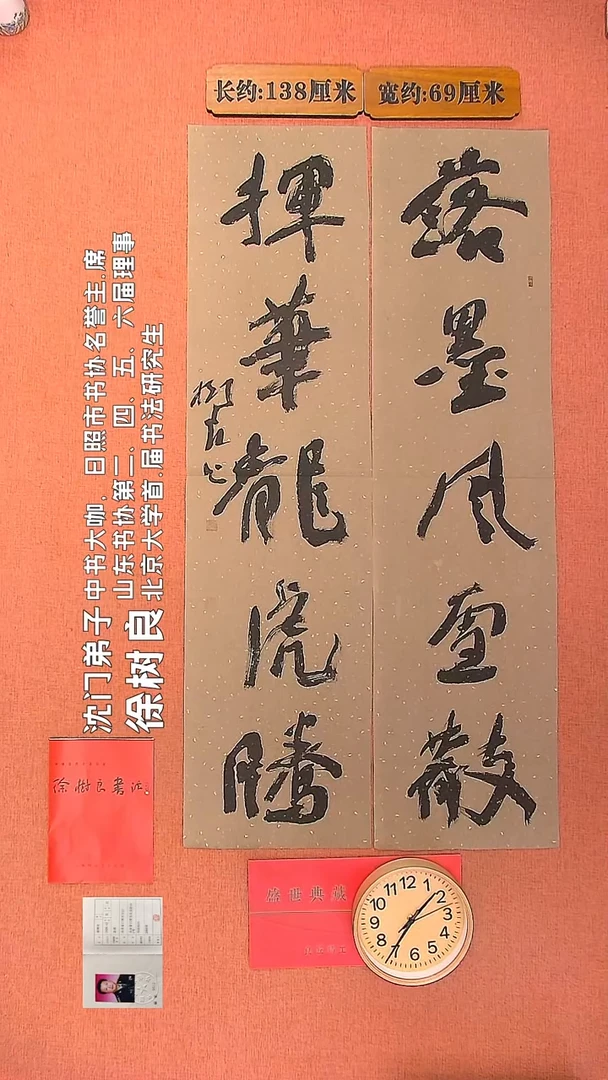 长约:138厘米
宽约:69厘米
落墨风雲散
揮華龍虎騰
樹良
沈门弟子 中书大咖, 日照市书协名誉主.席
山东书协第三、四、五、六届理事
徐树良 北京大学首.届书法研究生
徐樹良書法
盛世典藏
12 1 2 3 4 5 6 7 8 9 10 11